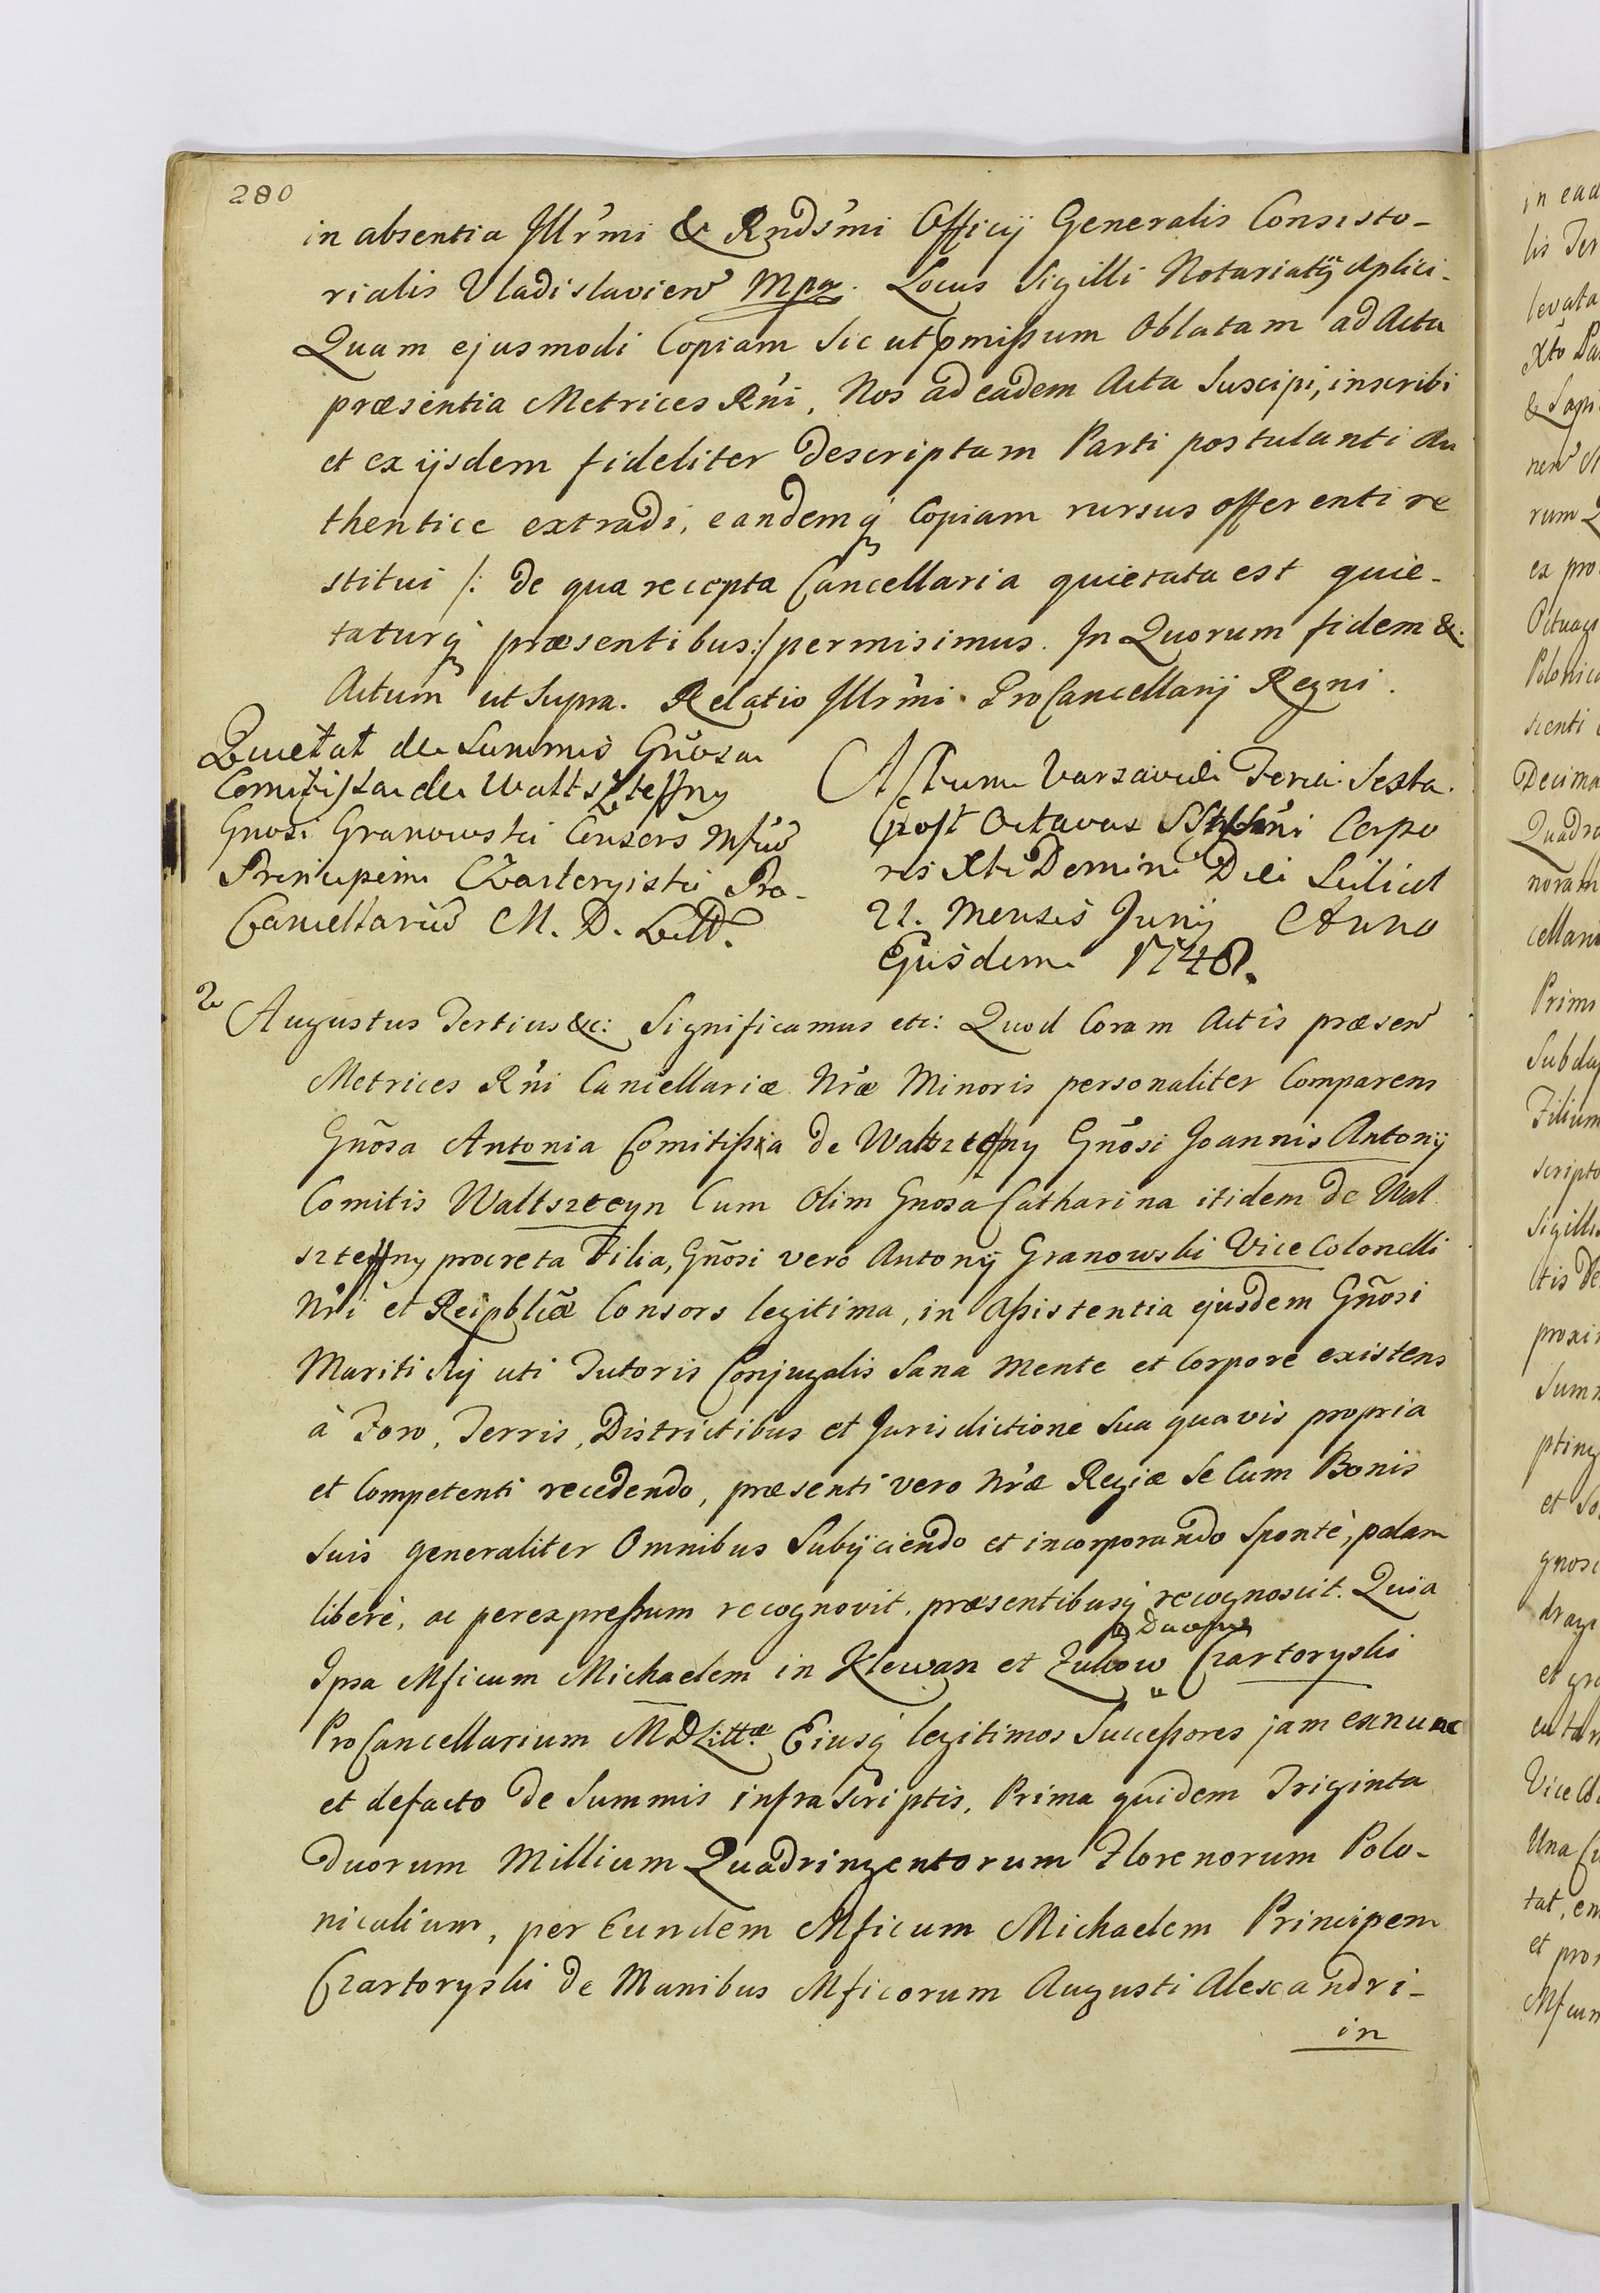 280
in absentia Jllr̃mi & Rnds̃mi Officij Generalis Consisto-
rialis Vladislavien̄ Mpa. Locus Sigilli Notariatq aplici-
Quam ejusmodi Copiam Sic ut pmißum Oblatam ad Acta
præsentia Metrices Rñi, Nos ad eadem Acta Suscipi, inscribi
et ex ijsdem fideliter Descriptam Parti postulanti Au
thentice extradi, eandemq Copiam rursus offerenti re
stitui /: de qua recepta Cancellaria quietata est quie-
taturq præsentibus:/ permisimus. Jn Quorum fidem &.
Actum ut Supra. Relatio Jllr̃mi ProCancellarij Regni.
Quietat de Summis Gñosa
Comitißa de Waltszteyny
Gnosi Granowski Consors Mfcũ
Principem Czartoryiski Pro-
Cancellariũ M. D. Litt.
Actum Varsaviæ Feria Sexta
Post Octavas SSmi Corpo
ris Xti Domini Dei Scilicet
21. Mensis Junij Anno
Ejusdem 1748.
Augustus Tertius &c: Significamus etc: Quod Coram Actis præsen̄
Metrices Rñi Cancellariæ Nr̃æ Minoris personaliter Comparens
Gñosa Antonia Comitißa de Waltszteyny Gñosi Joannis Antonij
Comitis Waltszteyn Cum Olim Gnosa Catharina itidem de Wal
szteyny procreta Filia, Gñosi vero Antonij Granowski Vice Colonelli
Nr̃i et Reipblicæ Consors legitima, in aßistentia ejusdem Gñosi
Mariti Sij uti Tutoris Conjugalis Sana Mente et Corpore existens
à Foro, Terris, Districtibus et Jurisdictione Sua quavis propria
et Competenti recedendo, præsenti vero Nr̃æ Regiæ Se Cum Bonis
Suis generaliter Omnibus Subijciendo et incorporando Spontè, palam
liberè, ac perexpreßum recognovit, præsentibusq recognoscit. Quia
Ipsa Mficum Michaelem in Klewan et Zukow Czartoryski
ProCancellarium MDLittæ Eiusq legitimos Succeßores jam exnunc
et defacto de Summis infra Scriptis, Prima quidem Triginta
Duorum Millium Quadringentorum Florenorum Polo-
nicalium, per Eundem Mficum Michaelem Principem
Czartoryski de Manibus Mficorum Augusti Alexandri-
in
in ead
lis Ter
levata
Xto Pa
& Sapi
rum Q
ex pro
Octuag
Polonica
scenti
Decima
Quadra
noram
cellari
Prims
Filium
scripto
Sigillis
tis De
proxi
Sum
et So
gnosc
et gra
Vice Col
Una Cu
tat, em
et pro
Mficum